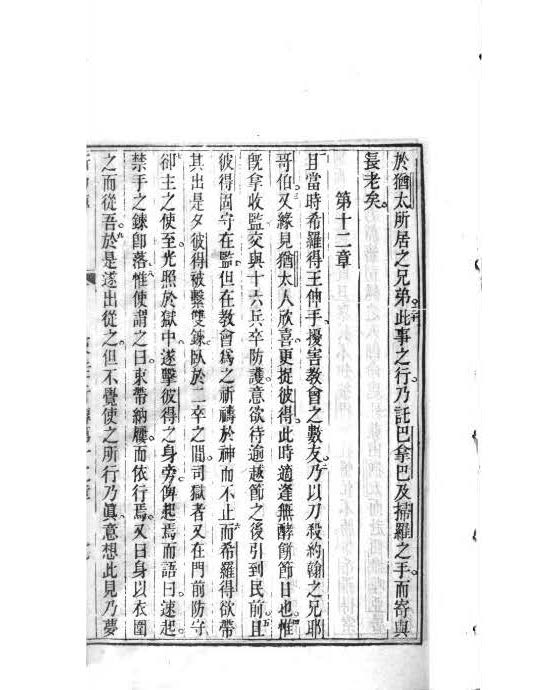 於猶太所居之兄弟此事之行乃託巴拿巴及掃羅之手而寄與
長老矣
第十二章
且當時希羅得王伸手擾害教會之數友乃以刀殺約翰之兄耶
哥伯又緣見猶太人欣喜更捉彼得此時適逢無酵餅節日也惟
旣拿收監交與十六兵卒防護意欲待逾越節之後引到民前且
彼得固守在監但在教會爲之祈禱於神而不止而希羅得欲帶
其出是夕彼得被繫雙鍊臥於二卒之間司獄者又在門前防守
卻主之使至光照於獄中遂擊彼得之身旁俾起焉而語曰速起
禁手之鍊卽落惟使謂之曰束帶納履而依行焉又曰身以衣圍
之而從吾於是遂出從之但不覺使之所行乃眞意想此見乃夢